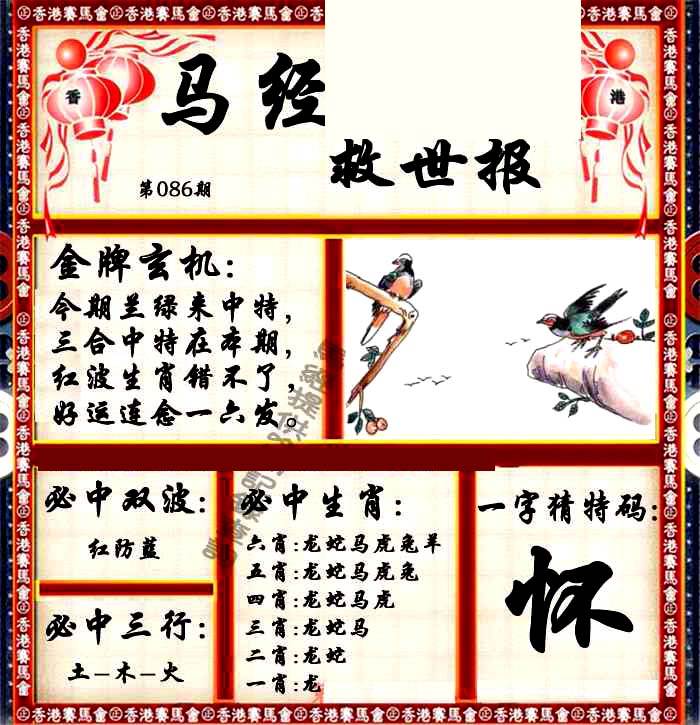 香港賽馬會㊣香港賽馬會㊣香港賽馬會㊣香港賽馬會㊣香港賽馬會㊣香港賽馬會
香
港
马经
救世报
第086期
金牌玄机:
今期兰绿来中特,
三合中特在本期,
红波生肖错不了,
好运连念一六发。
必中双波:
红防蓝
必中三行:
土-木-火
必中生肖:
六肖:龙蛇马虎兔羊
五肖:龙蛇马虎兔
四肖:龙蛇马虎
三肖:龙蛇马
二肖:龙蛇
一肖:龙
一字猜特码:
怀